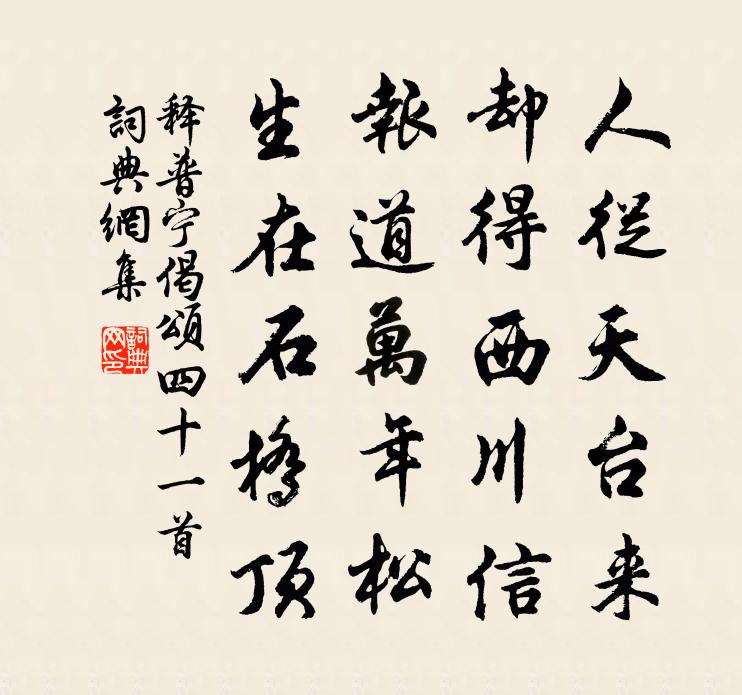 人從天台来
却得西川信
報道萬年松
生在石橋頂
释普宁偈頌四十一首
詞典網集
詞典网印